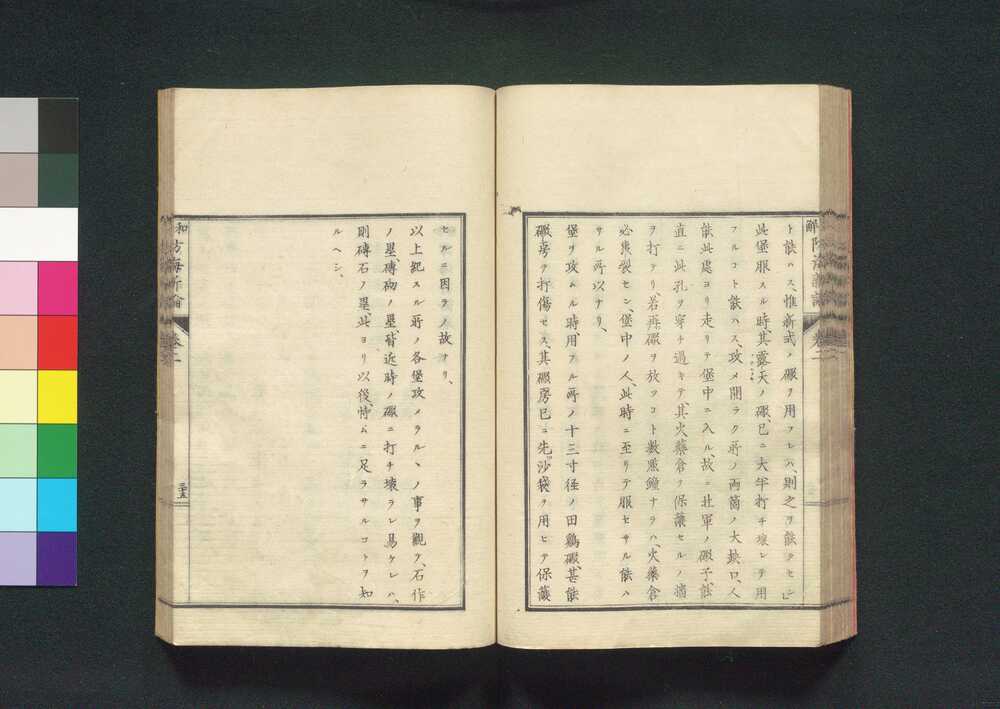 ト能ハス、惟新式ノ礮ヲ用フレハ、則之ヲ能クセシ
此堡服スル時、其露天ノ礮、已ニ大半打チ壊レテ用
フルコト能ハス、攻メ開ラク所ノ両箇ノ大缺口、人
能此處ヨリ走リテ堡中ニ入ル、故ニ北軍ノ礮子、能
直ニ此孔ヲ穿チ過キテ、其火藥倉ヲ保護セルノ墻
ヲ打テリ、若再礮ヲ放ツコト數點鐘ナラハ、火藥倉
必炸裂セン、堡中ノ人、此時ニ至リテ服セサル能ハ
サル所以ナリ、
堡ヲ攻ムル時、用フル所ノ十三寸径ノ田鷄礮、甚能
礮房ヲ打傷セス、其礮房已ニ先沙袋ヲ用ヒテ保護
セルニ因ラノ故ナリ、
以上紀スル所ノ各堡攻メラルヽノ事ヲ觀ヲ、石作
ノ壘磚砌ノ壘、皆近時ノ礮ニ打チ壊ラレ易ケレハ、
則磚石ノ壘、此ヨリ以後、恃ムニ足ラサルコトヲ知
ルヘシ、
防海新論
卷二
三十五